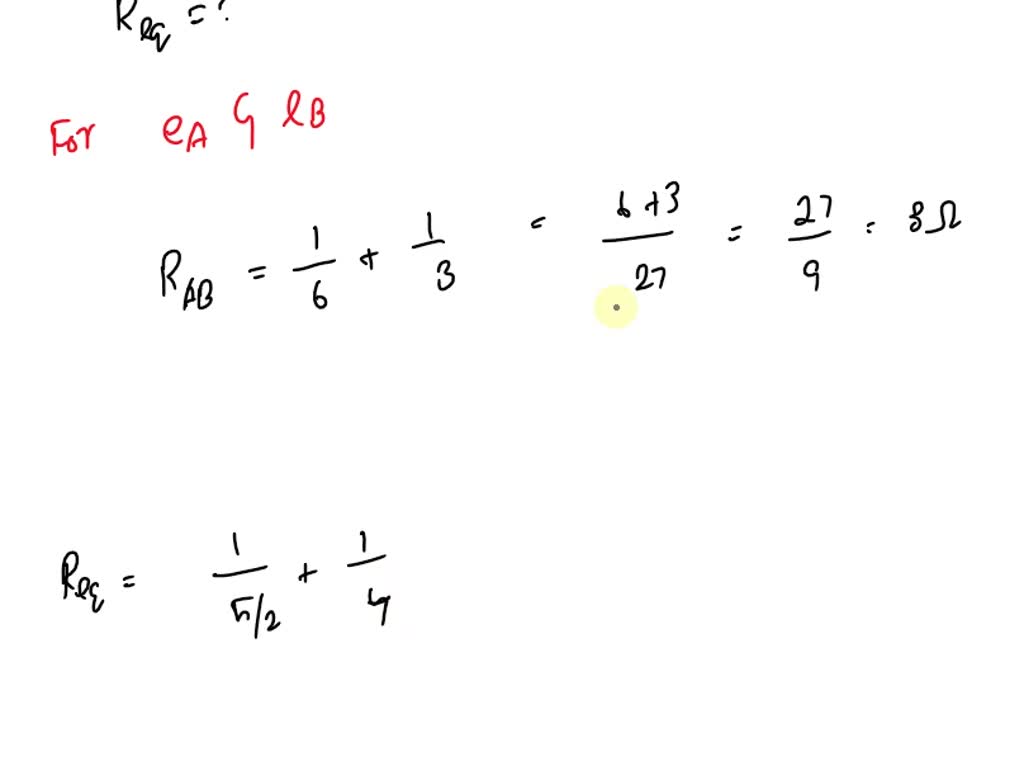 Req = ?
For eA G lB
RAB = 1/6 + 1/3 = 6+3/27 = 27/9 = 3Ω
Req = 1/5/2 + 1/4